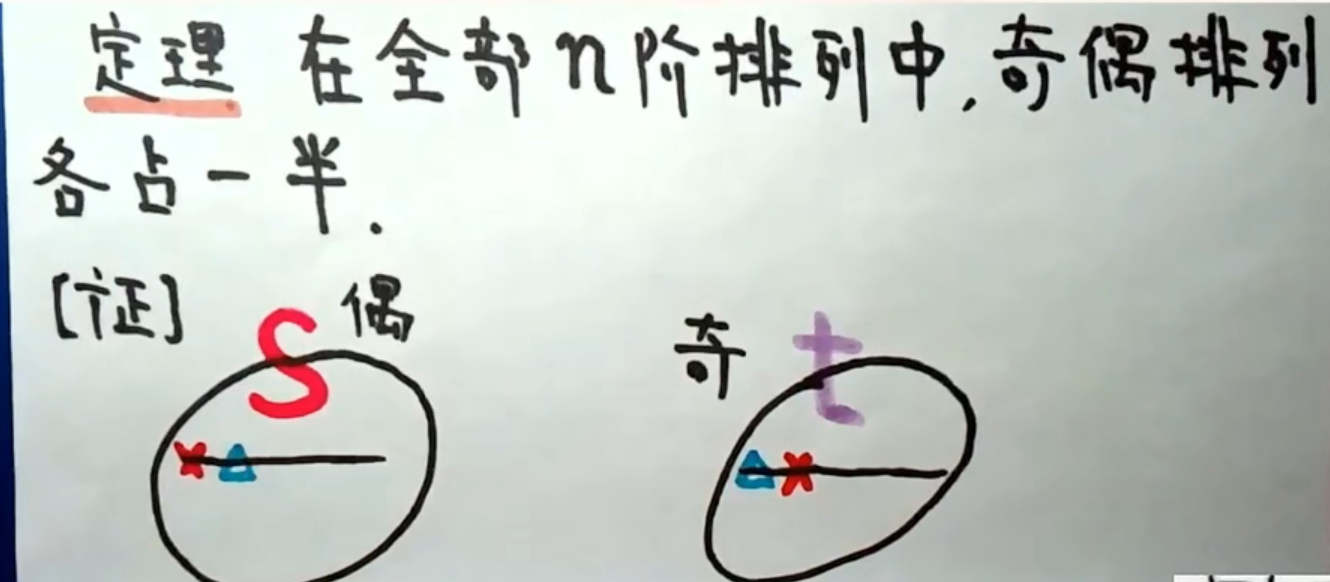 定理 在全部n阶排列中,奇偶排列
各占一半.
[证] S 偶 奇 t